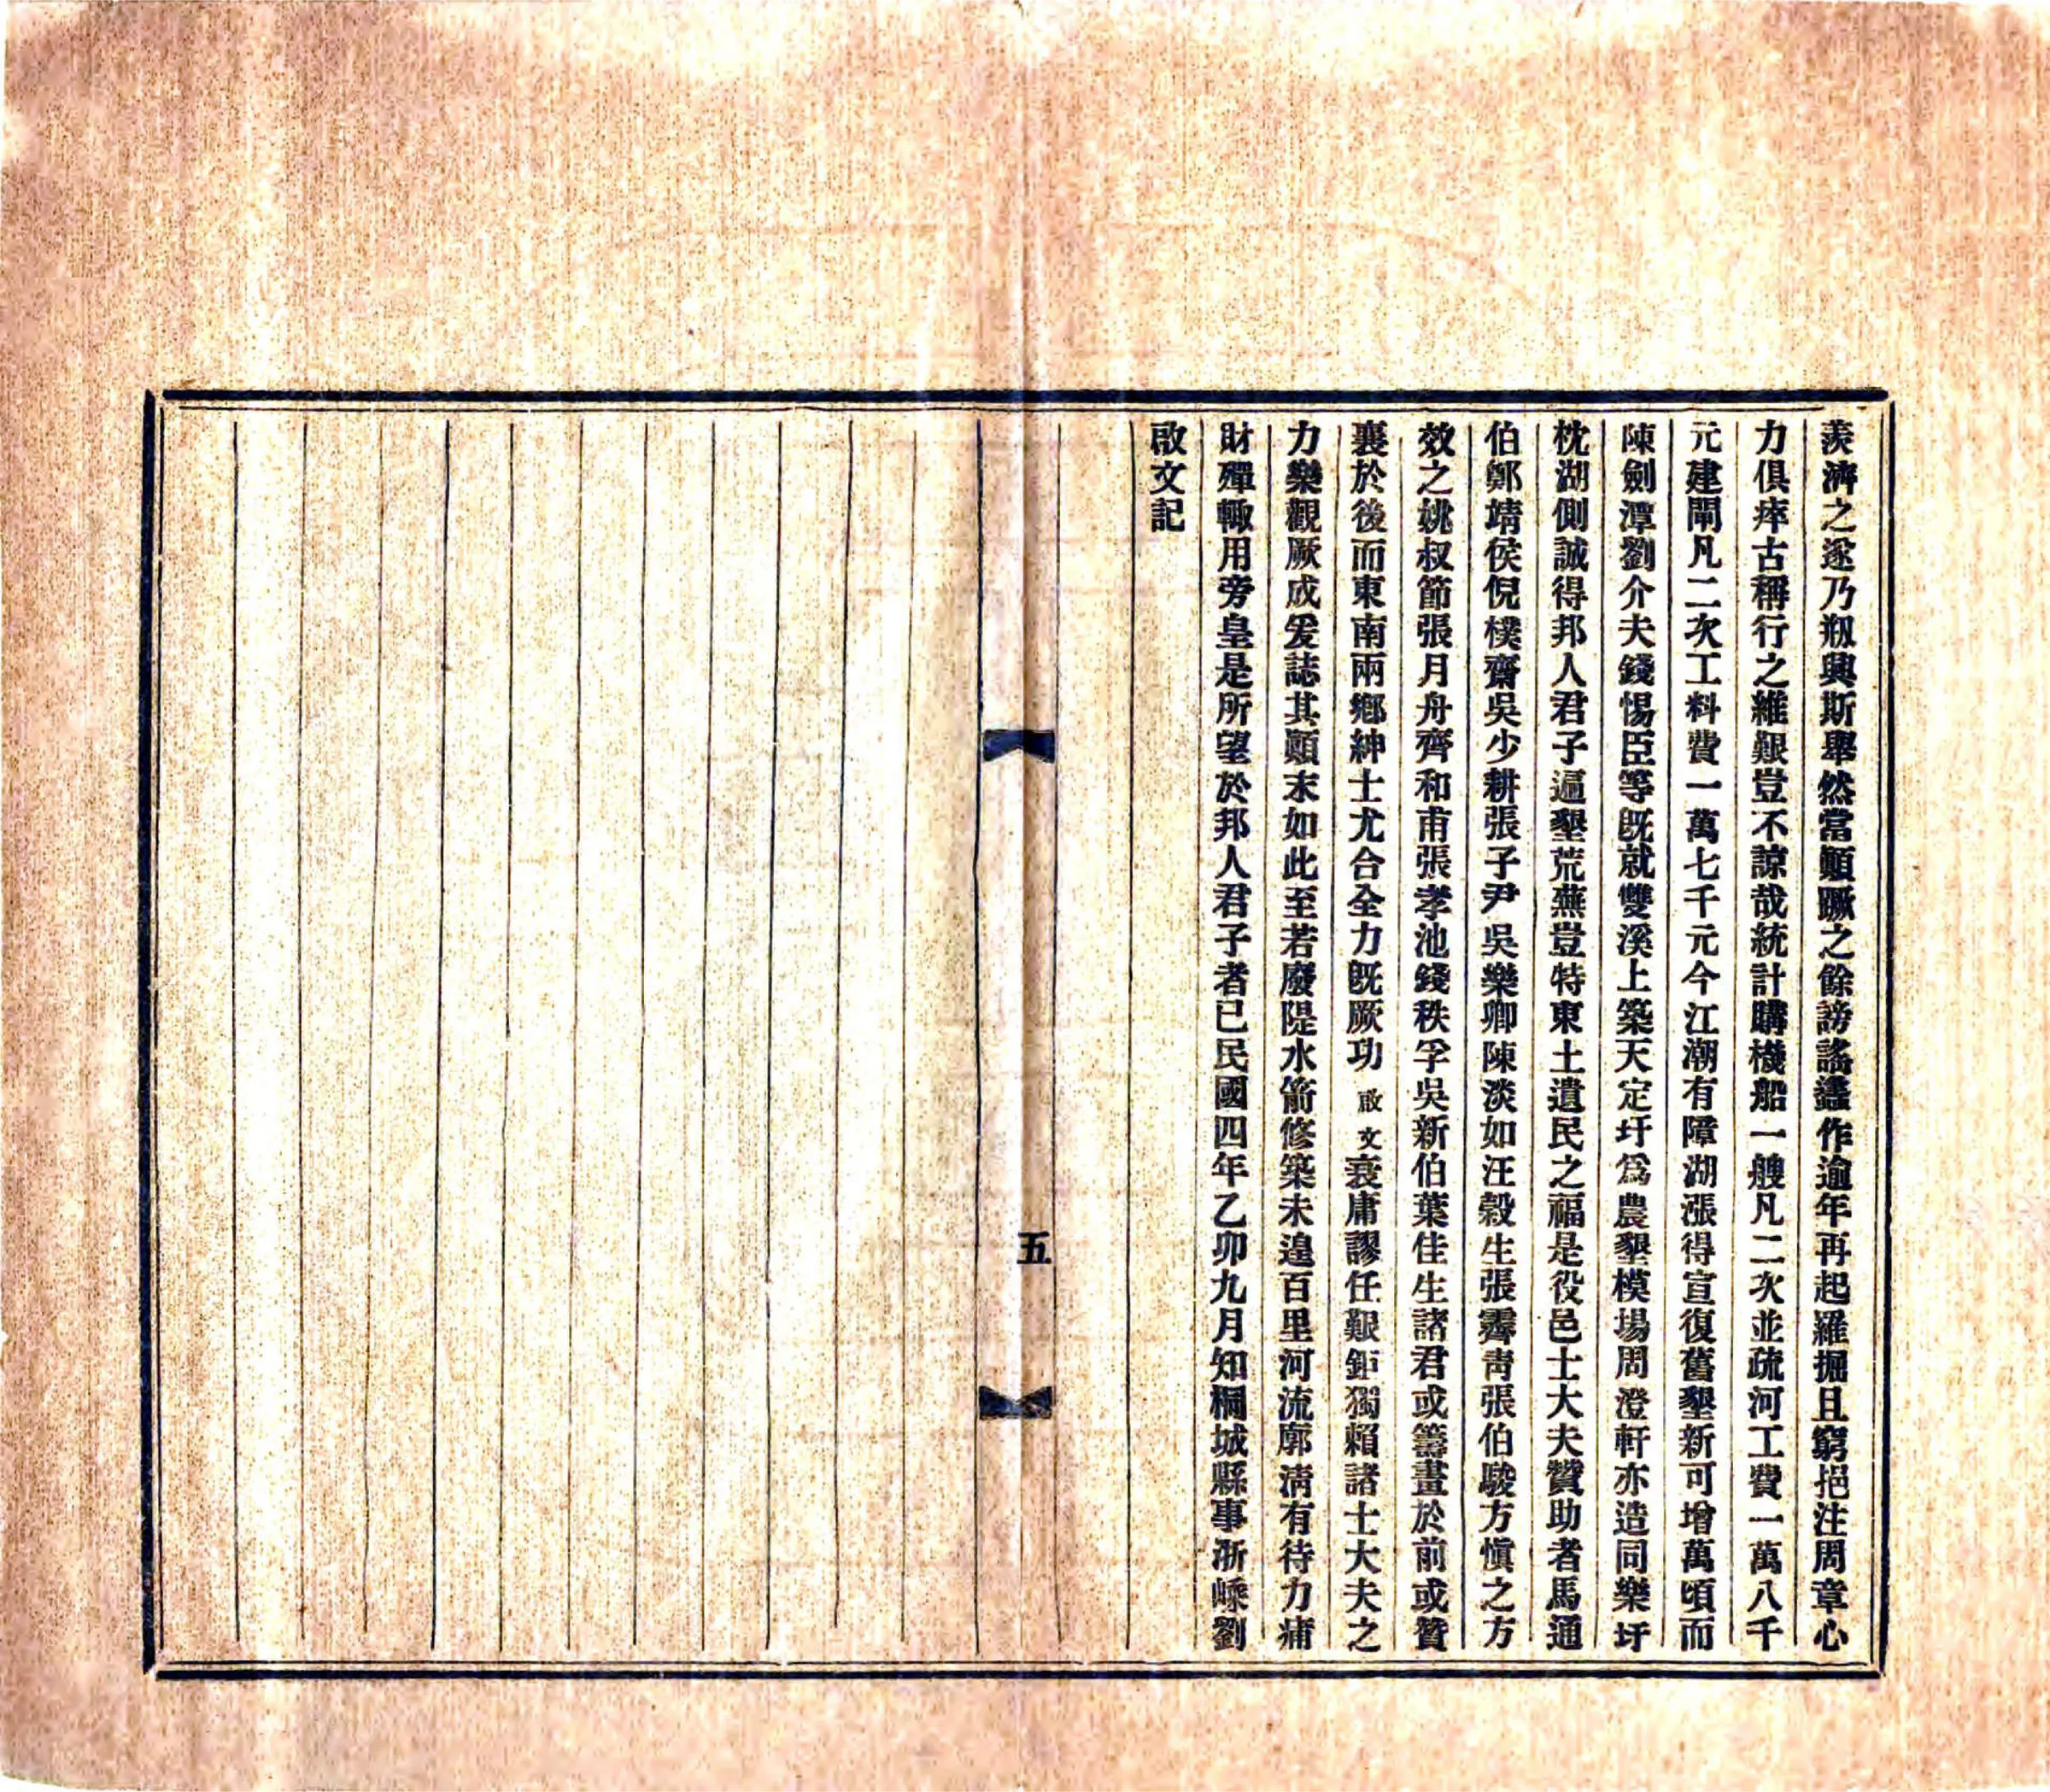 羨濟之遂乃剏興斯舉然當顛蹶之餘謗謠蠭作逾年再起羅掘且窮挹注周章心
力俱瘁古稱行之維艱豈不諒哉統計購機船一艘凡二次並疏河工費一萬八千
元建閘凡二次工料費一萬七千元今江潮有障湖漲得宣復舊墾新可增萬頃而
陳劍潭劉介夫錢惕臣等旣就雙溪上築天定圩爲農墾模場周澄軒亦造同樂圩
枕湖側誠得邦人君子遍墾荒蕪豈特東土遺民之福是役邑士大夫贊助者馬通
伯鄭靖侯倪樸齋吳少耕張子尹吳樂卿陳淡如汪穀生張霽靑張伯駿方愼之方
效之姚叔節張月舟齊和甫張孝池錢秩孚吳新伯葉佳生諸君或籌畫於前或贊
襄於後而東南兩鄕紳士尤合全力旣厥功啟文衰庸謬任艱鉅獨賴諸士大夫之
力樂觀厥成爰誌其顚末如此至若廢隄水箭修築未遑百里河流廓淸有待力痡
財殫輙用旁皇是所望於邦人君子者已民國四年乙卯九月知桐城縣事浙嵊劉
啟文記
五